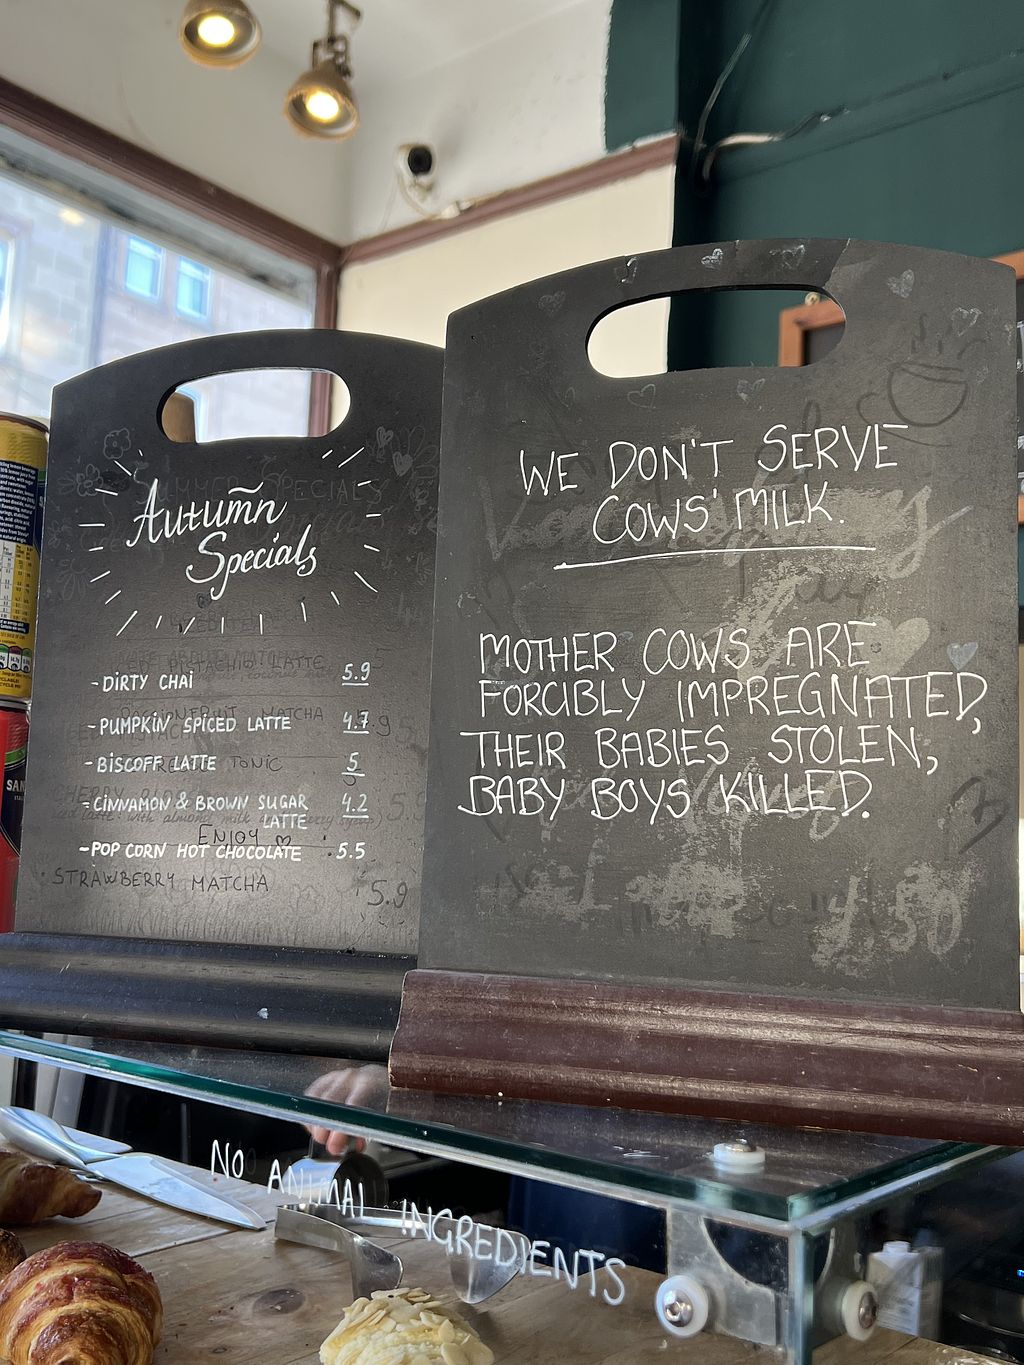 Autumn
Specials
-DIRTY CHAI 5.9
-PUMPKIN SPICED LATTE 4.7
-BISCOFF LATTE 5
-CINNAMON & BROWN SUGAR 4.2
LATTE
ENJOY
-POP CORN HOT CHOCOLATE 5.5
STRAWBERRY MATCHA 5.9
WE DON'T SERVE
COWS' MILK.
MOTHER COWS ARE
FORCIBLY IMPREGNATED,
THEIR BABIES STOLEN,
BABY BOYS KILLED.
NO ANIMAL INGREDIENTS